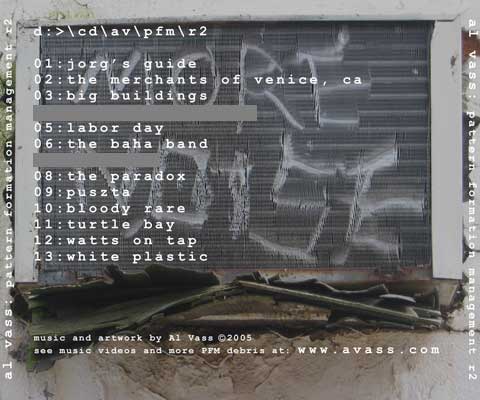 d:>\cd\av\pfm\r2
01:jorg's guide
02:the merchants of venice, ca
03:big buildings
05:labor day
06:the baha band
08:the paradox
09:puszta
10:bloody rare
11:turtle bay
12:watts on tap
13:white plastic
music and artwork by Al Vass ©2005
see music videos and more PFM debris at: www.avass.com
al vass: pattern formation management r2
al vass: pattern formation management r2
MORE